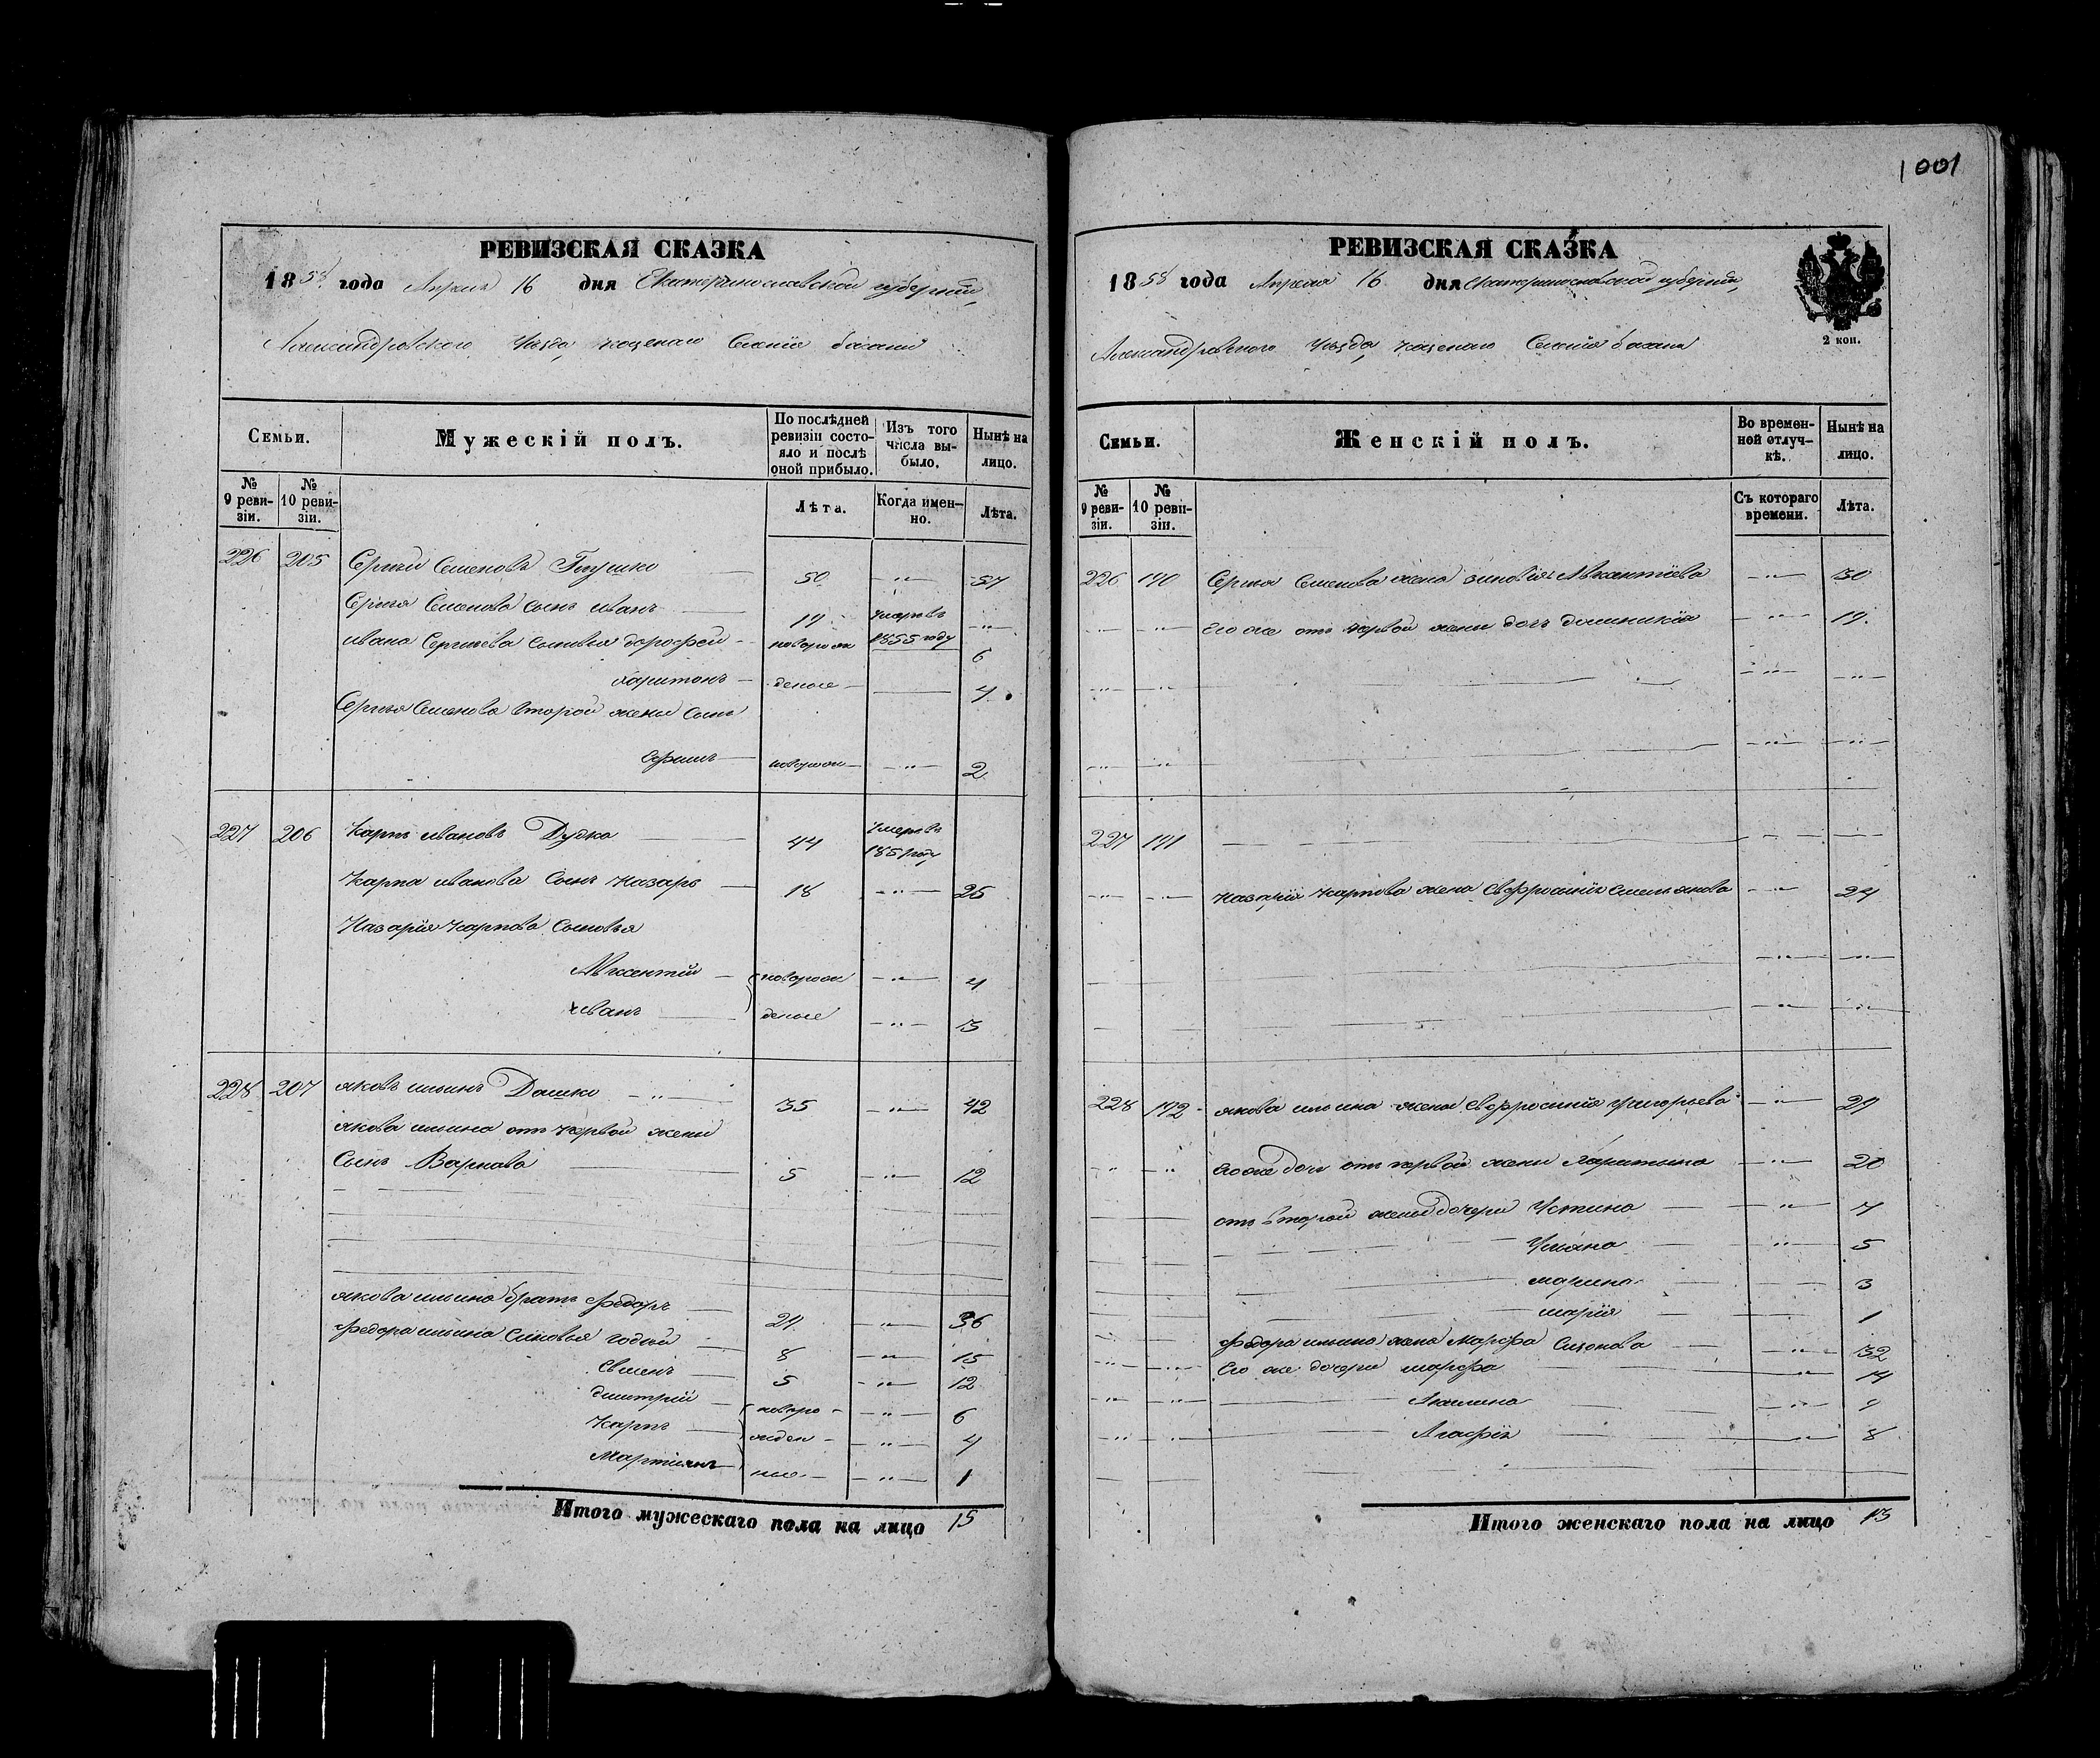 1001
РЕВИЗСКАЯ СКАЗКА
1858 года Апреля 16 дня Екатеринославской губерніи,
Александровского Уезда, казеного Селенія
Семьи.
Мужескій полъ.
По послѣдней ревизіи состояло и послѣ оной прибыло.
Изъ того числа выбыло.
Нынѣ на лицо.
№ 9 ревизіи.
№ 10 ревизіи.
Лѣта.
Когда именно.
Лѣта.
226 205 Сергѣй Семеновъ 50 — " — 57
Сергея Семенова сынъ иванъ 19 умеръ въ 1855 году "
ивана Сергеева сыновья дорофей новорож 6
харитонъ деные 4
Сергея Семенова второй жены сынъ
Ефимъ новорож — " — 2
227 206 Карпъ ивановъ Дудка 44 умеръ въ 1851 году
Карпа иванова сынъ назаръ 18 — " — 25
Назарія карпова сыновья
Авксентій новорож — " — 4
иванъ деные — " — 3
228 207 яковъ ильинъ Дашко 35 — " — 42
якова ильина отъ первой жены
сынъ Варнава 5 — " — 12
якова ильина братъ федоръ 29 — " — 36
федора ильина сыновья 8 — " — 15
5 — " — 12
дмитрій новоро — " — 6
карпъ жден — " — 4
Мартіянъ ные — " — 1
Итого мужескаго пола на лицо 15
РЕВИЗСКАЯ СКАЗКА
1858 года Апреля 16 дня Екатеринославской губерніи,
Александровского Уезда, казеного Селенія
2 коп.
Семьи.
Женскій полъ.
Во временной отлучкѣ.
Нынѣ на лицо.
№ 9 ревизіи.
№ 10 ревизіи.
Съ котораго времени.
Лѣта.
226 190 Сергея Семенова жена зиновія Авксентіева — " — 30
его же отъ первой жены дочь домникія — " — 19
227 191
назарія карпова жена евфросинія емельянова — " — 24
228 192 якова ильина жена евфросинія григорьева — " — 29
его же дочь отъ первой жены Харитына — " — 20
отъ второй жены дочери Устина — " — 7
Уліана " 5
марина 3
марія 1
федора ильина жена Марфа — " — 32
Его же дочери марфа 14
Акилина — " — 9
Агафія 8
Итого женскаго пола на лицо 13